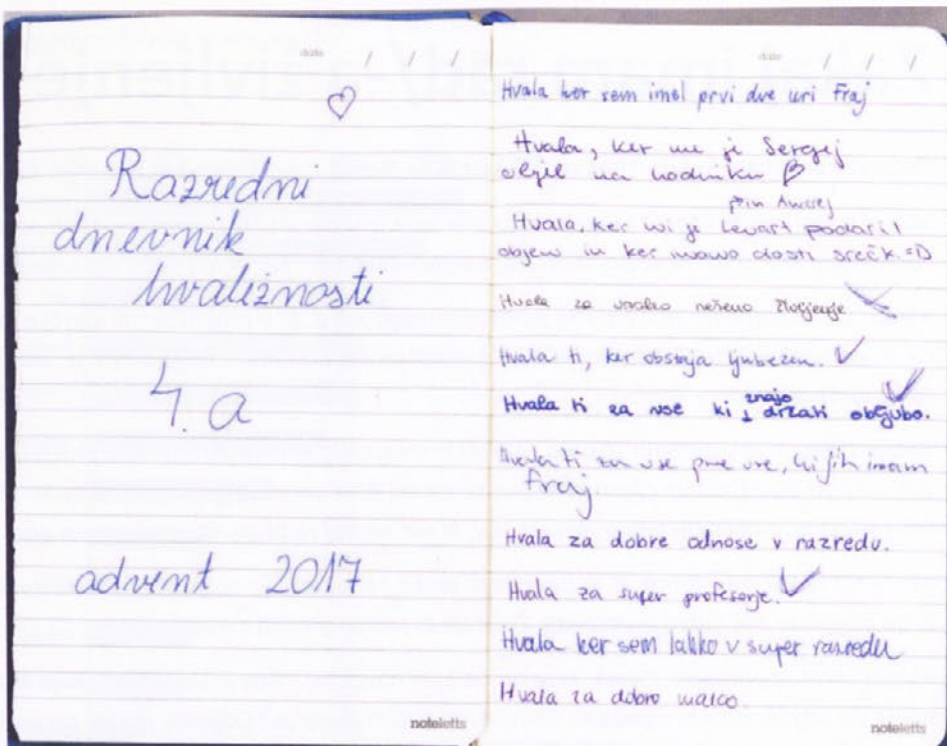 date / / /
Razredni
dnevnik
hvaležnosti
4. a
advent 2017
noteletts
date / / /
Hvala ker sem imel prvi dve uri fraj
Hvala, ker me je Sergej
objel na hodniku
in Andrej
Hvala, ker mi je Levart podaril
objem in ker imamo dosti srečk =D
Hvala za vsako nošeno življenje
Hvala ti, ker obstaja ljubezen.
znajo
Hvala ti za vse ki držati obljubo.
Hvala ti za vse prve ure, ki jih imam
fraj.
Hvala za dobre odnose v razredu.
Hvala za super profesorje.
Hvala ker sem lahko v super razredu
Hvala za dobro malco.
noteletts